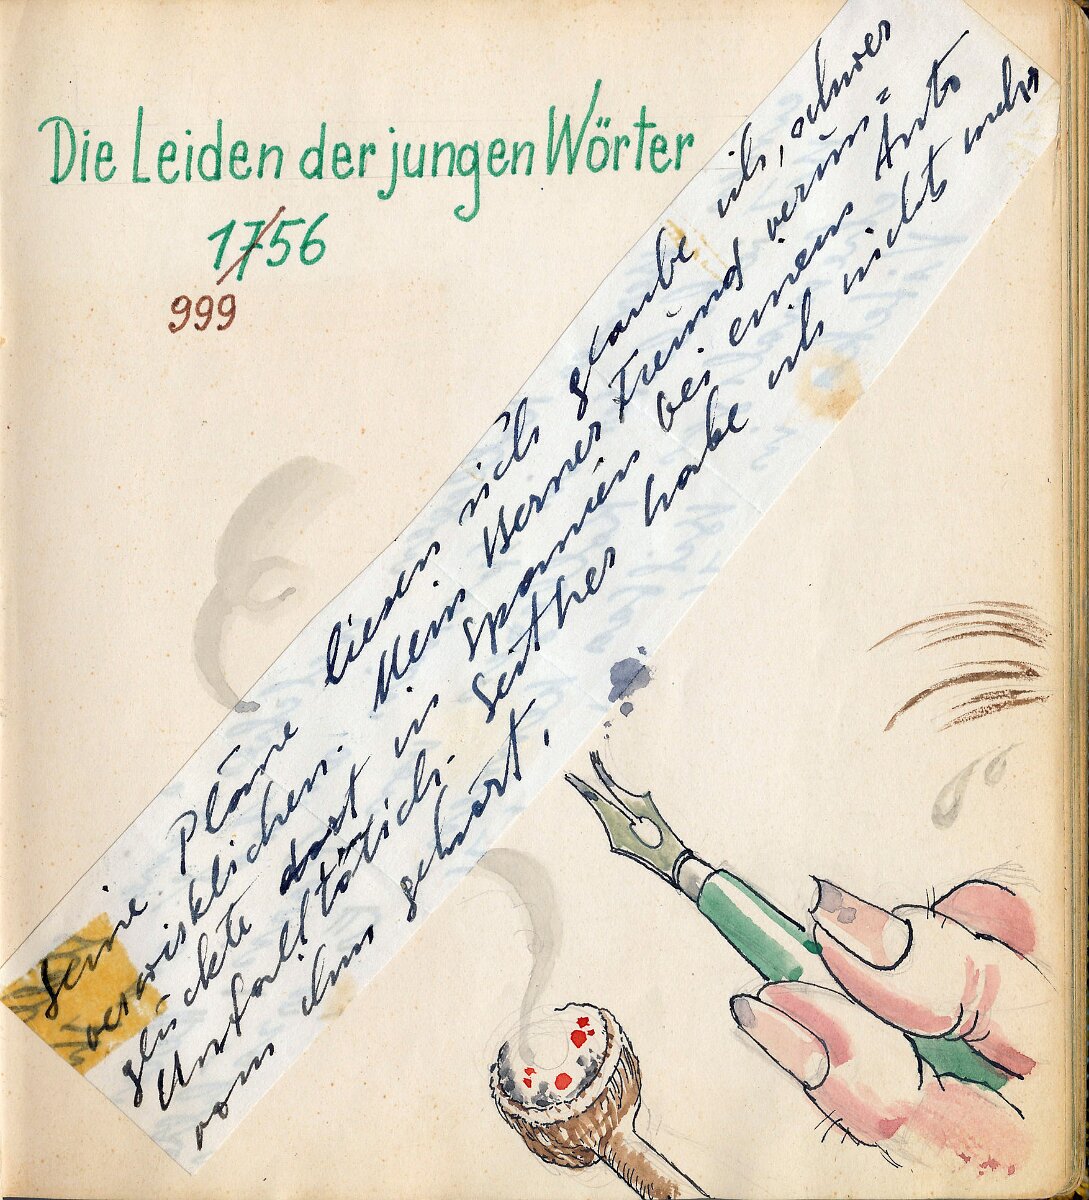 Die Leiden der jungen Wörter
1756
999
Seine Pläne liesen sich glaube ich, schwer
verwirklichen. Mein Berner Freund verun=
glückte dort in Spanien bei einem Auto
Unfall tötlich. Seither habe ich nichts mehr
von ihm gehört.